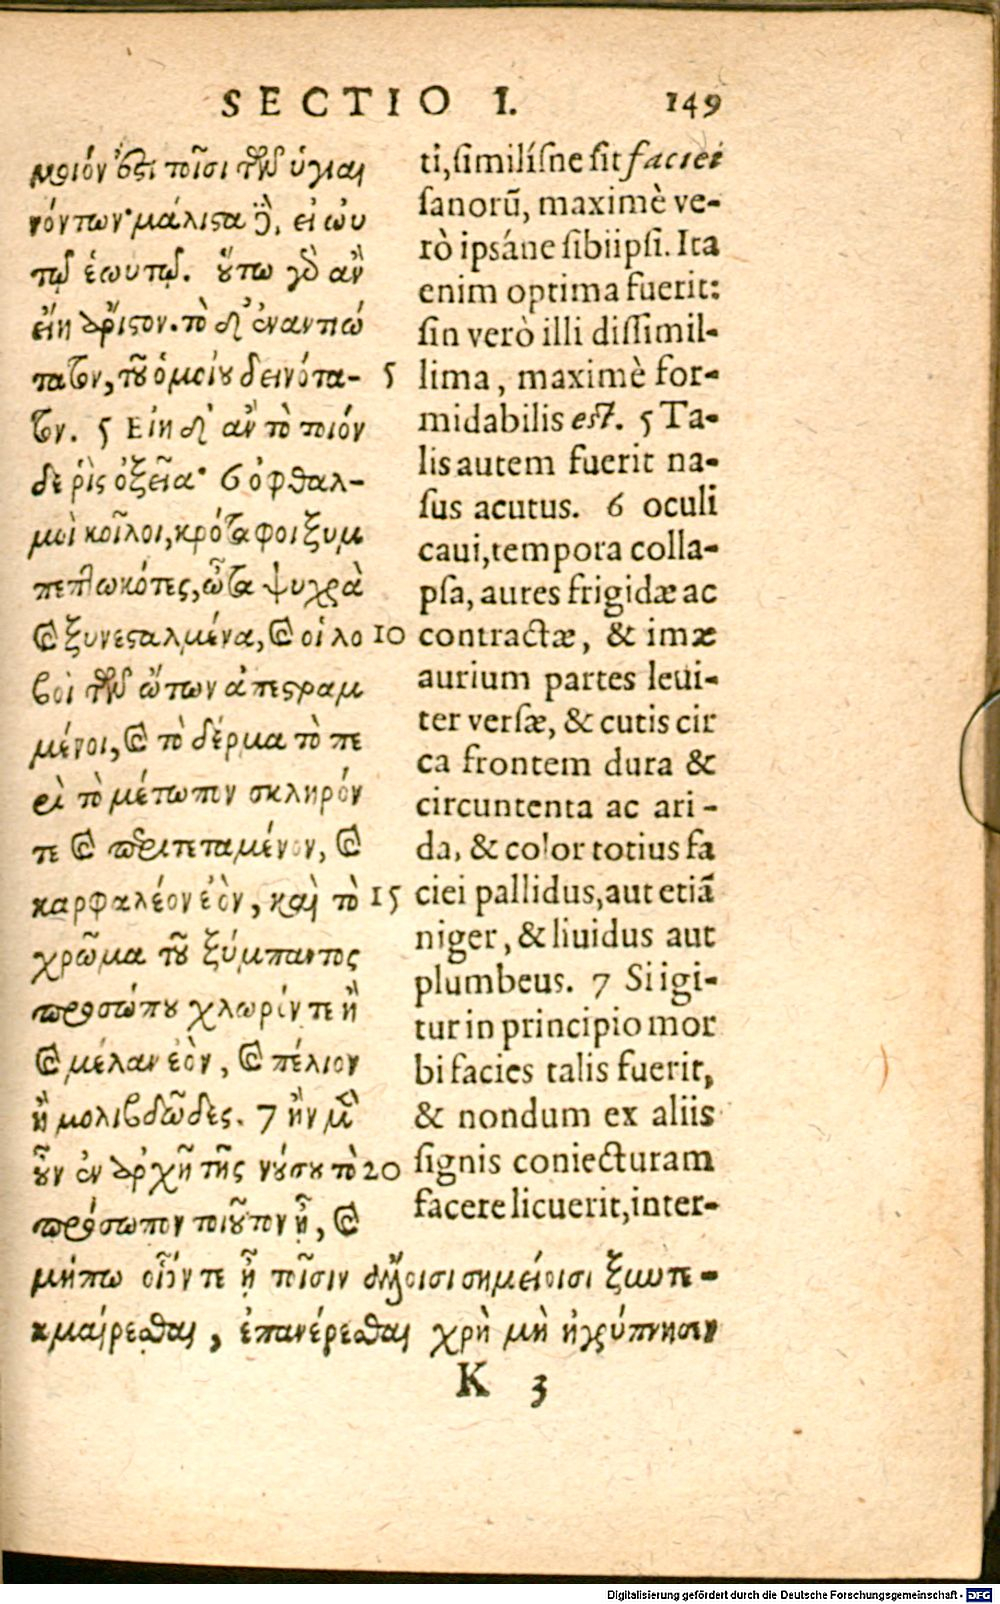 SECTIO I. 149
μοιόν ἐστι τοῖσι τῶν ὑγιαι
νόντων· μάλιστα δὲ, εἰ ωὐ
τῷ ἑωυτῷ. οὕτω γὰρ ἂν
εἴη ἄριστον. τὸ δ' ἐναντιώ
τατον, τοῦ ὁμοίου δεινότα-
τον. 5 Είη δ' ἂν τὸ τοιόν
δε ῥὶς ὀξεῖα· 6 ὀφθαλ-
μοὶ κοῖλοι, κρόταφοι ξυμ
πεπτωκότες, ὦτα ψυχρὰ
καὶ ξυνεσταλμένα, καὶ οἱ λο
βοὶ τῶν ὤτων ἀπεστραμ
μένοι, καὶ τὸ δέρμα τὸ πε
ρὶ τὸ μέτωπον σκληρόν
τε καὶ περιτεταμένον, καὶ
καρφαλέον ἐὸν, καὶ τὸ
χρῶμα τοῦ ξύμπαντος
προσώπου χλωρόν τε ἢ
καὶ μέλαν ἐὸν, καὶ πέλιον
ἢ μολιβδῶδες. 7 ἢν μὲν
οὖν ἐν ἀρχῇ τῆς νούσου τὸ
πρόσωπον τοιοῦτον ᾖ, καὶ
μήπω οἷόν τε ᾖ τοῖσιν ἄλλοισι σημείοισι ξυντε-
κμαίρεσθαι, ἐπανέρεσθαι χρὴ μὴ ἠγρύπνησεν
5
10
15
20
ti, similísne sit faciei
sanorũ, maximè ve-
rò ipsáne sibiipsi. Ita
enim optima fuerit:
sin verò illi dissimil-
lima, maximè for-
midabilis est. 5 Ta-
lis autem fuerit na-
sus acutus. 6 oculi
caui, tempora colla-
psa, aures frigidæ ac
contractæ, & imæ
aurium partes leui-
ter versæ, & cutis cir
ca frontem dura &
circuntenta ac ari-
da, & color totius fa
ciei pallidus, aut etiã
niger, & liuidus aut
plumbeus. 7 Si igi-
tur in principio mor
bi facies talis fuerit,
& nondum ex aliis
signis coniecturam
facere licuerit, inter-
K 3
Digitalisierung gefördert durch die Deutsche Forschungsgemeinschaft - DFG